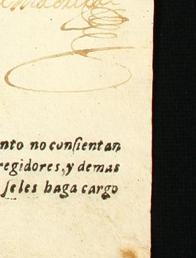 nto no consientan
regidores, y demas
seles haga cargo